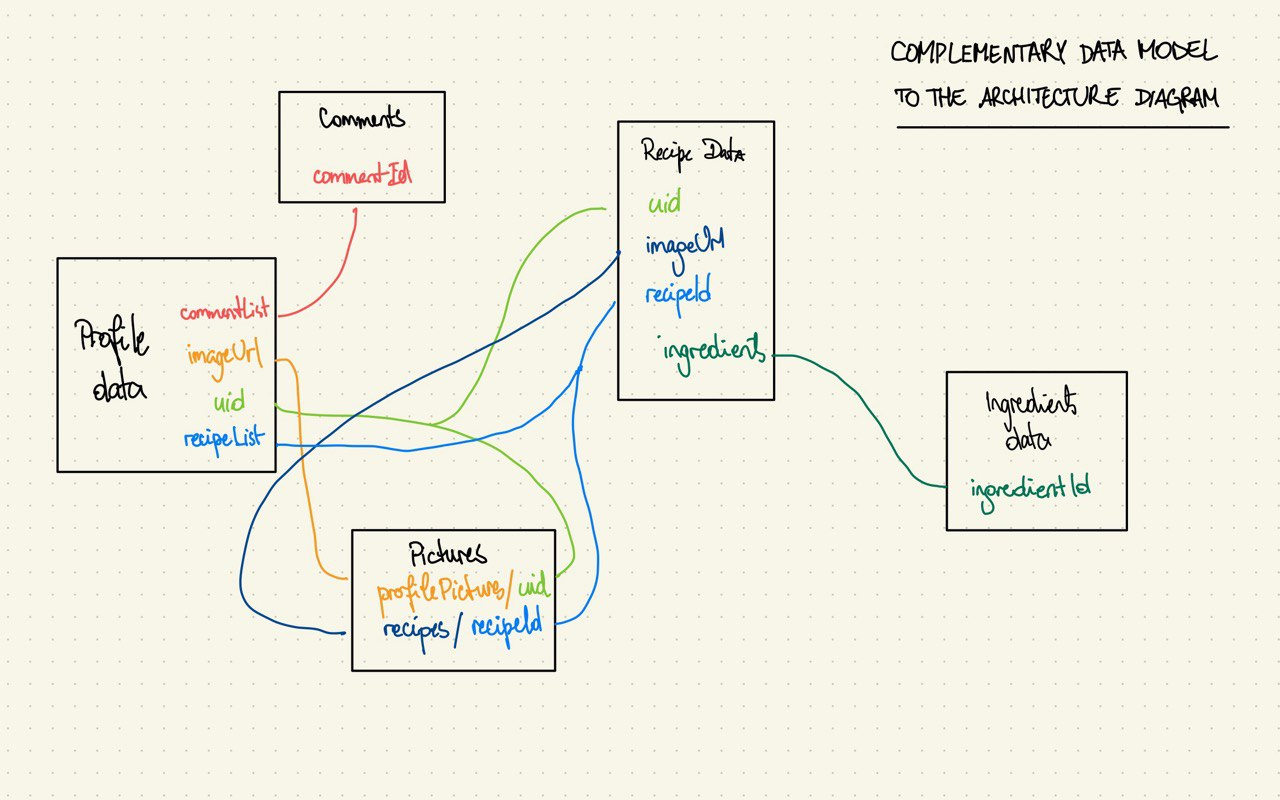 COMPLEMENTARY DATA MODEL
TO THE ARCHITECTURE DIAGRAM
Comments
commentId
Recipe Data
uid
imageUrl
recipeId
ingredients
Profile
data
commentList
imageUrl
uid
recipeList
Ingredients
data
ingredientId
Pictures
profilePicture/uid
recipes/recipeId